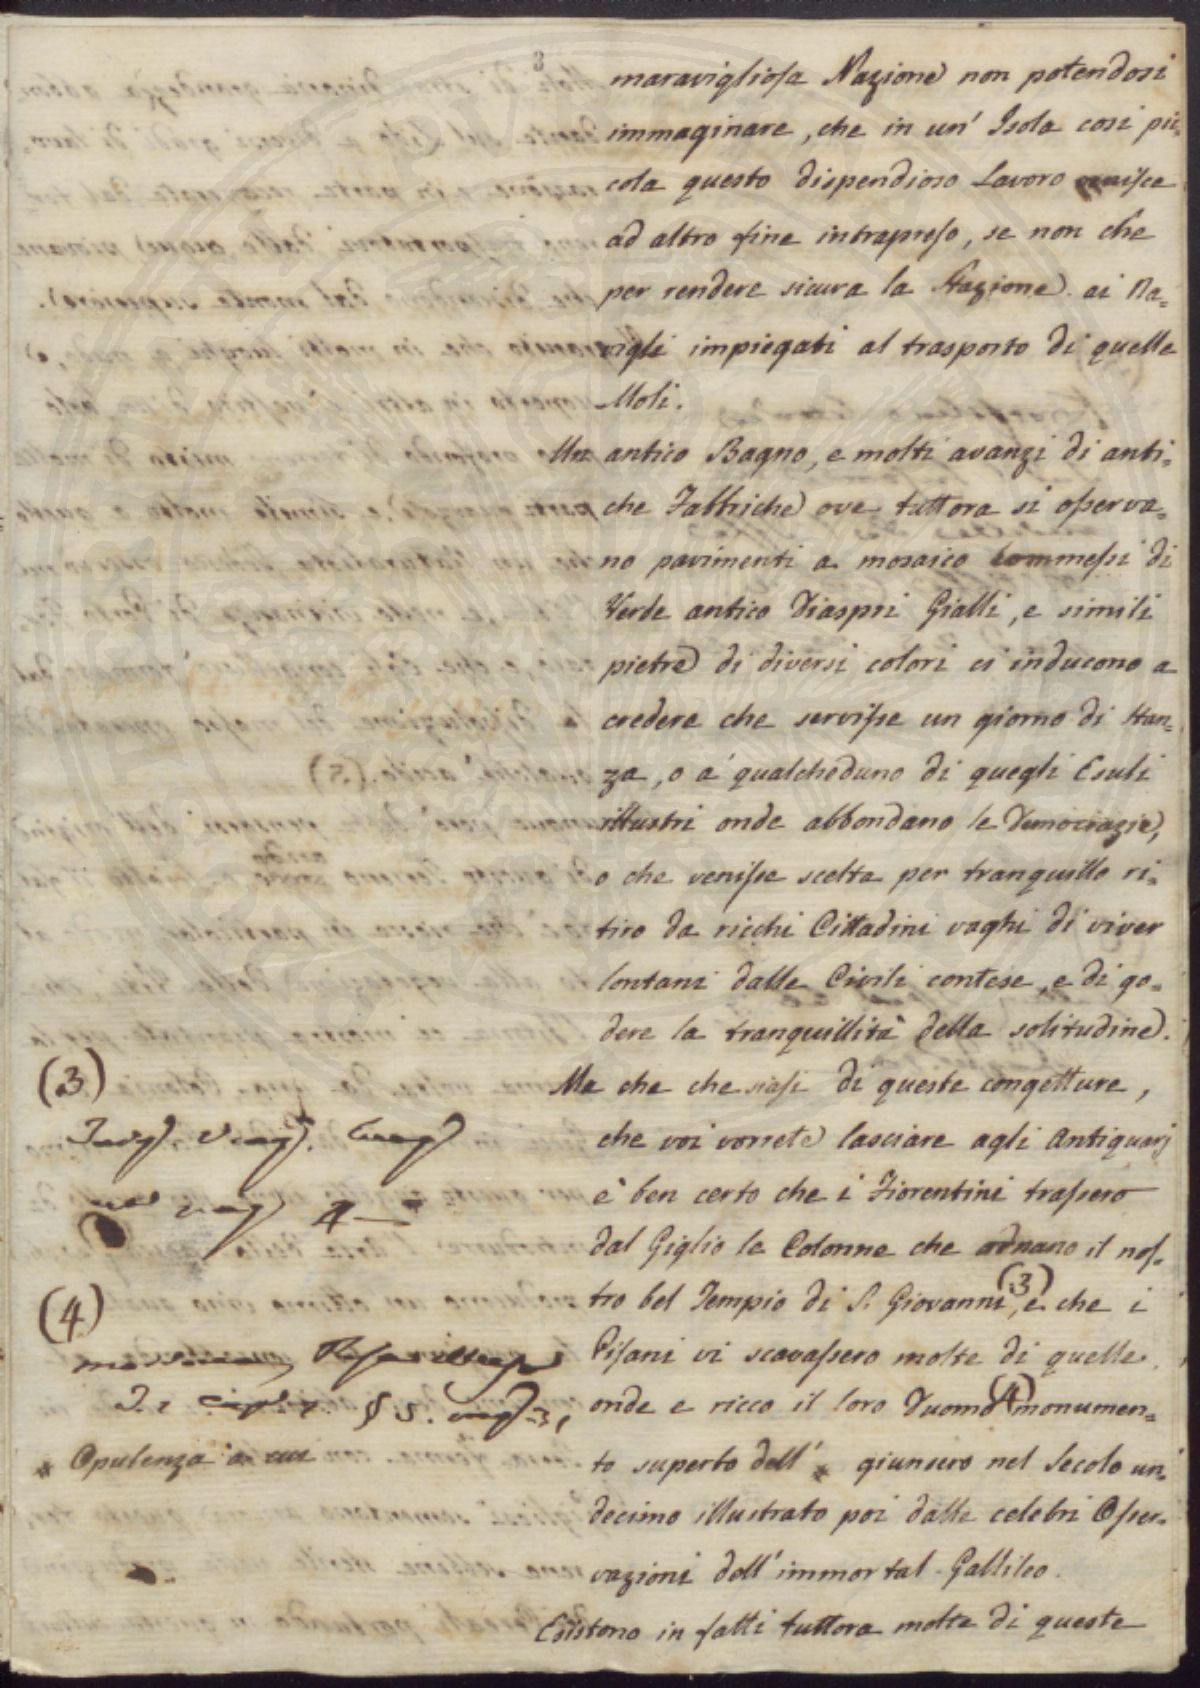 8
maravigliosa Nazione non potendosi
immaginare, che in un' Isola così pic-
cola questo dispendioso Lavoro venisse
ad altro fine intrapreso, se non che
per rendere sicura la Stazione ai Na-
vigli impiegati al trasporto di quelle
Moli.
Un antico Bagno, e molti avanzi di anti-
che Fabbriche ove tuttora si osserva-
no pavimenti a mosaico commessi di
Verde antico Diaspri Gialli, e simili
pietre di diversi colori ci inducono a
credere che servisse un giorno di stan-
za, o a qualcheduno di quegli Esuli
illustri onde abbondano le Democrazie,
o che venisse scelta per tranquillo ri-
tiro da ricchi Cittadini vaghi di viver
lontani dalle Civili contese, e di go-
dere la tranquillità della solitudine.
Ma che che siasi di queste congetture,
che voi vorrete lasciare agli Antiquarj
è ben certo che i Fiorentini trassero
dal Giglio le Colonne che adornano il nos-
tro bel Tempio di S. Giovanni (3), e che i
Pisani vi scavassero molte di quelle
onde e ricco il loro Duomo (4) monumen-
to superbo dell' * giunsero nel Secolo un-
decimo illustrato poi dalle celebri Osser-
vazioni dell' immortal Gallileo.
Esistono in fatti tuttora molte di queste
(3)
(4)
* Opulenza a cui